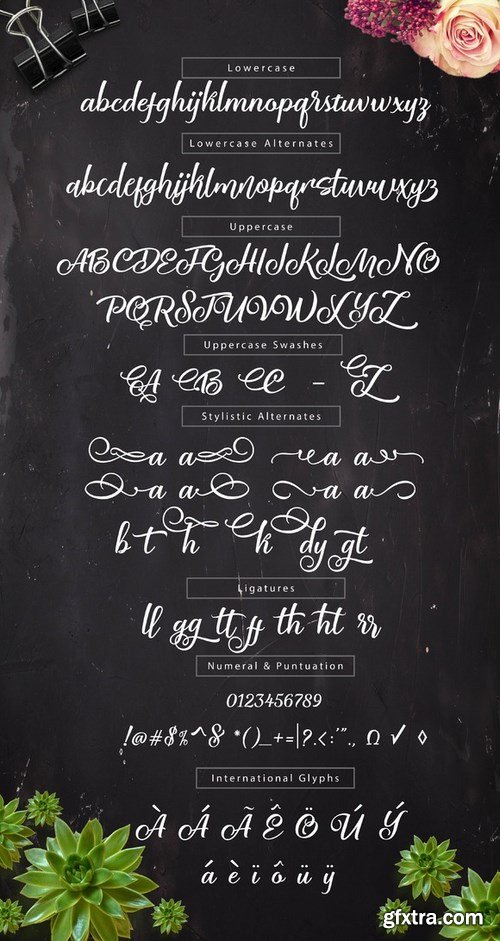 Lowercase
abcdefghijklmnopqrstuvwxyz
Lowercase Alternates
abcdefghijklmnopqrstuvwxyz
Uppercase
ABCDEFGHIJKLMNO
PQRSTUVWXYZ
Uppercase Swashes
A B C - Z
Stylistic Alternates
a a a a
a a a a
b t h k dy gt
Ligatures
ll gg tt ff th ht rr
Numeral & Puntuation
0123456789
!@#$%^& *()_+=|?.<:'"., Ω √ ◊
International Glyphs
À Á Ã Ê Ö Ú Ý
á è ï ô ü ÿ
gfxtra.com